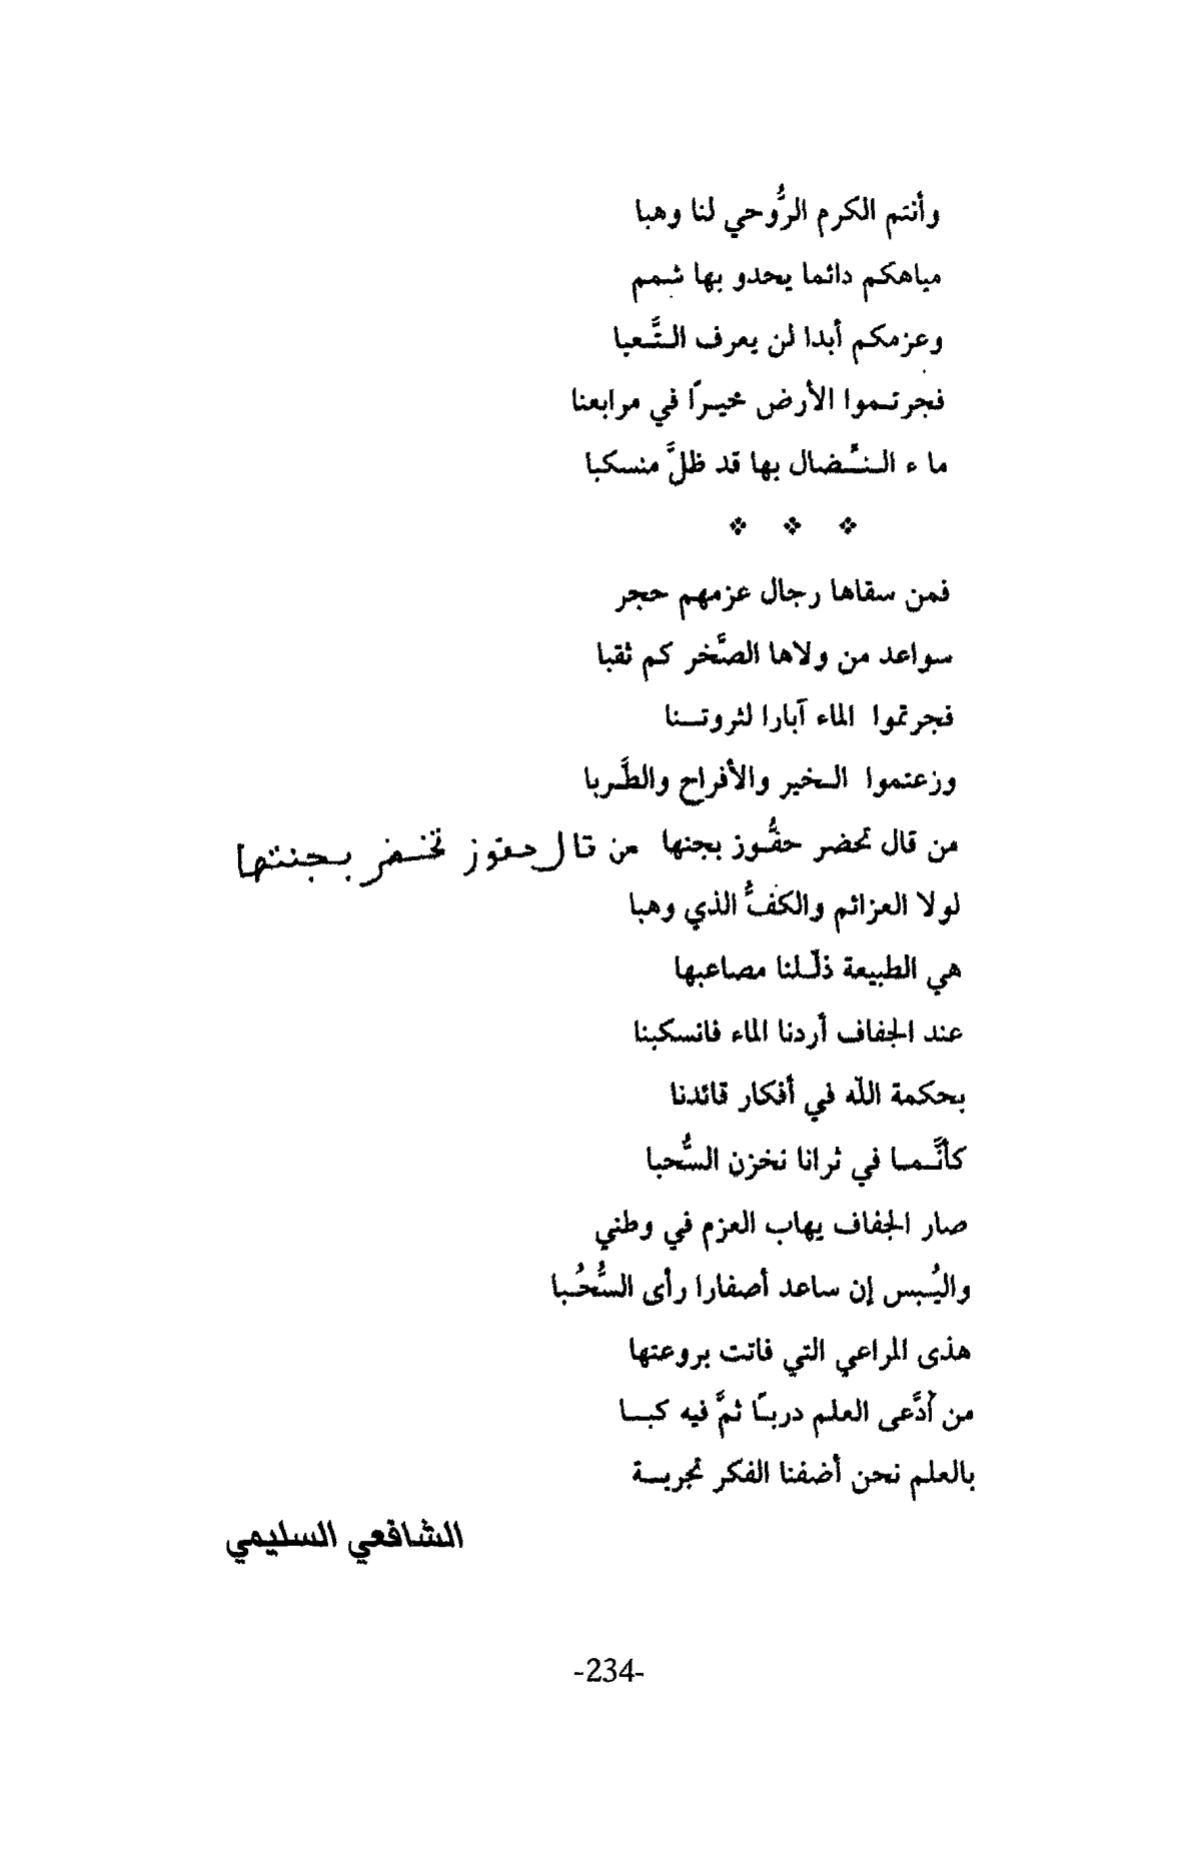 وأنتم الكرم الرُّوحي لنا وهبا
مياهكم دائما يحدو بها شمم
وعزمكم أبدا لن يعرف التَّعبا
فجرتموا الأرض خيرًا في مرابعنا
ما ء النِّضال بها قد ظلَّ منسكبا
❖ ❖ ❖
فمن سقاها رجال عزمهم حجر
سواعد من ولاها الصَّخر كم ثقبا
فجرتموا الماء آبارا لثروتنا
وزعتموا الخير والأفراح والطَّربا
من قال تحضر حفُّوز بجنها من قال حفوز تخضر بجنتها
لولا العزائم والكفُّ الذي وهبا
هي الطبيعة ذلّلنا مصاعبها
عند الجفاف أردنا الماء فانسكبنا
بحكمة الله في أفكار قائدنا
كأنَّما في ثرانا نخزن السُّحبا
صار الجفاف يهاب العزم في وطني
واليُبس إن ساعد أصفارا رأى السُّحُبا
هذى المراعي التي فاتت بروعتها
من أدَّعى العلم دربًا ثمَّ فيه كبا
بالعلم نحن أضفنا الفكر تجربة
الشافعي السليمي
-234-